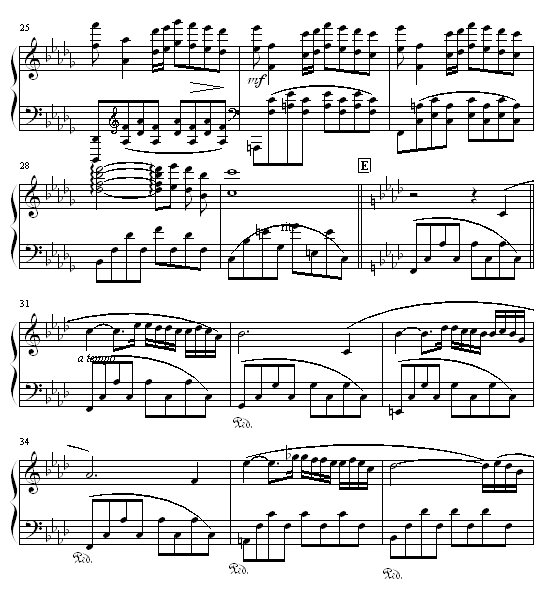 25
mf
28
E
rit.
31
a tempo
Ped.
34
Ped.
Ped.
Ped.